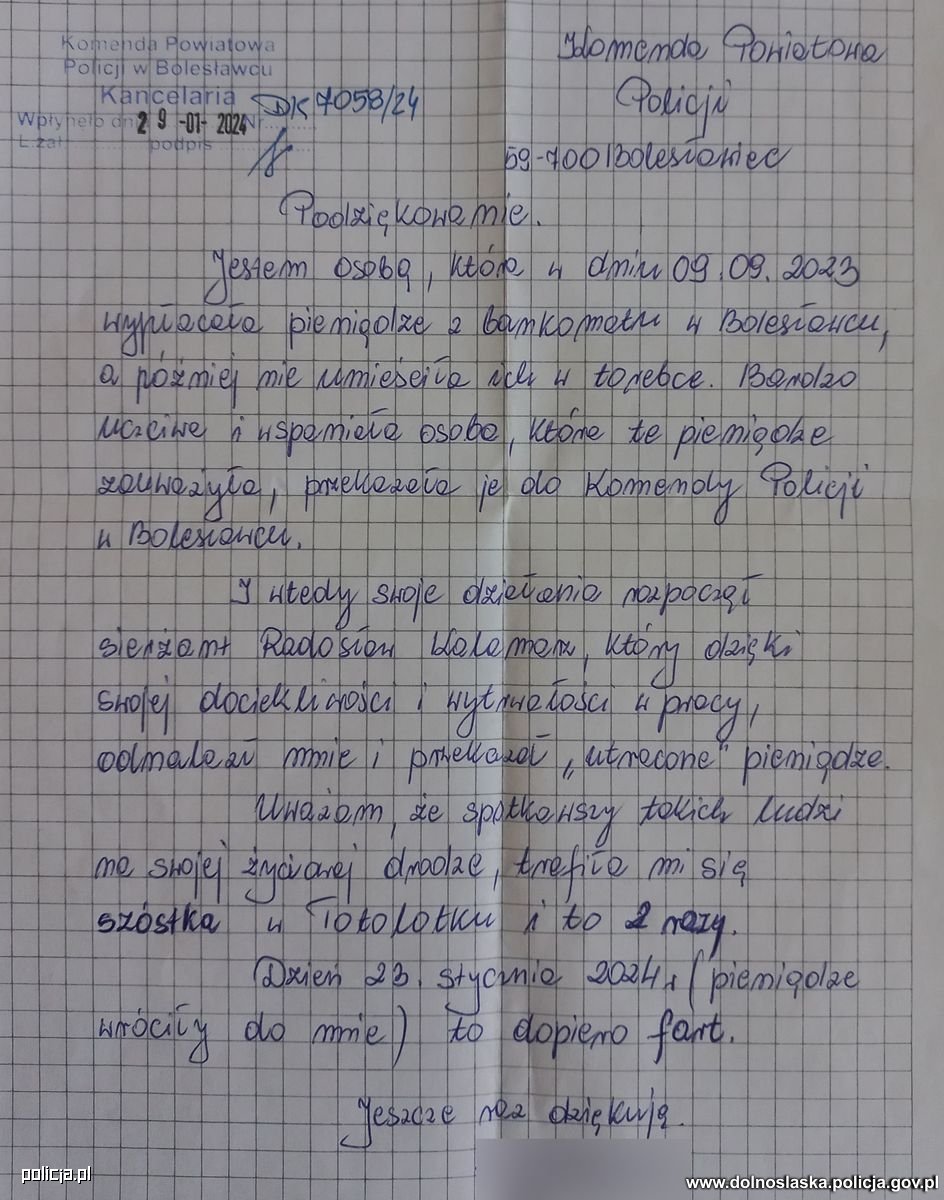 Komenda Powiatowa
Policji w Bolesławcu
Kancelaria
DK 7058/24
Wpłynęło dn. 29 -01- 2024 Nr
L.zał. podpis
Komenda Powiatowa
Policji
59-700 Bolesławiec
Podziękowanie.
Jestem osobą, która w dniu 09.09.2023
wypłacała pieniądze z bankomatu w Bolesławcu,
a później nie umieściła ich w torebce. Bardzo
uczciwa i wspaniała osoba, która te pieniądze
zauważyła, przekazała je do Komendy Policji
w Bolesławcu.
I wtedy swoje działania rozpoczął
sierżant Radosław, który dzięki
swojej dociekliwości i wytrwałości w pracy,
odnalazł mnie i przekazał „utracone" pieniądze.
Uważam, że spotkawszy takich ludzi
na swojej życiowej drodze, trafiła mi się
szóstka w Totolotku i to 2 razy.
Dzień 23. stycznia 2024r (pieniądze
wróciły do mnie) to dopiero fart.
Jeszcze raz dziękuję.
policja.pl
www.dolnoslaska.policja.gov.pl